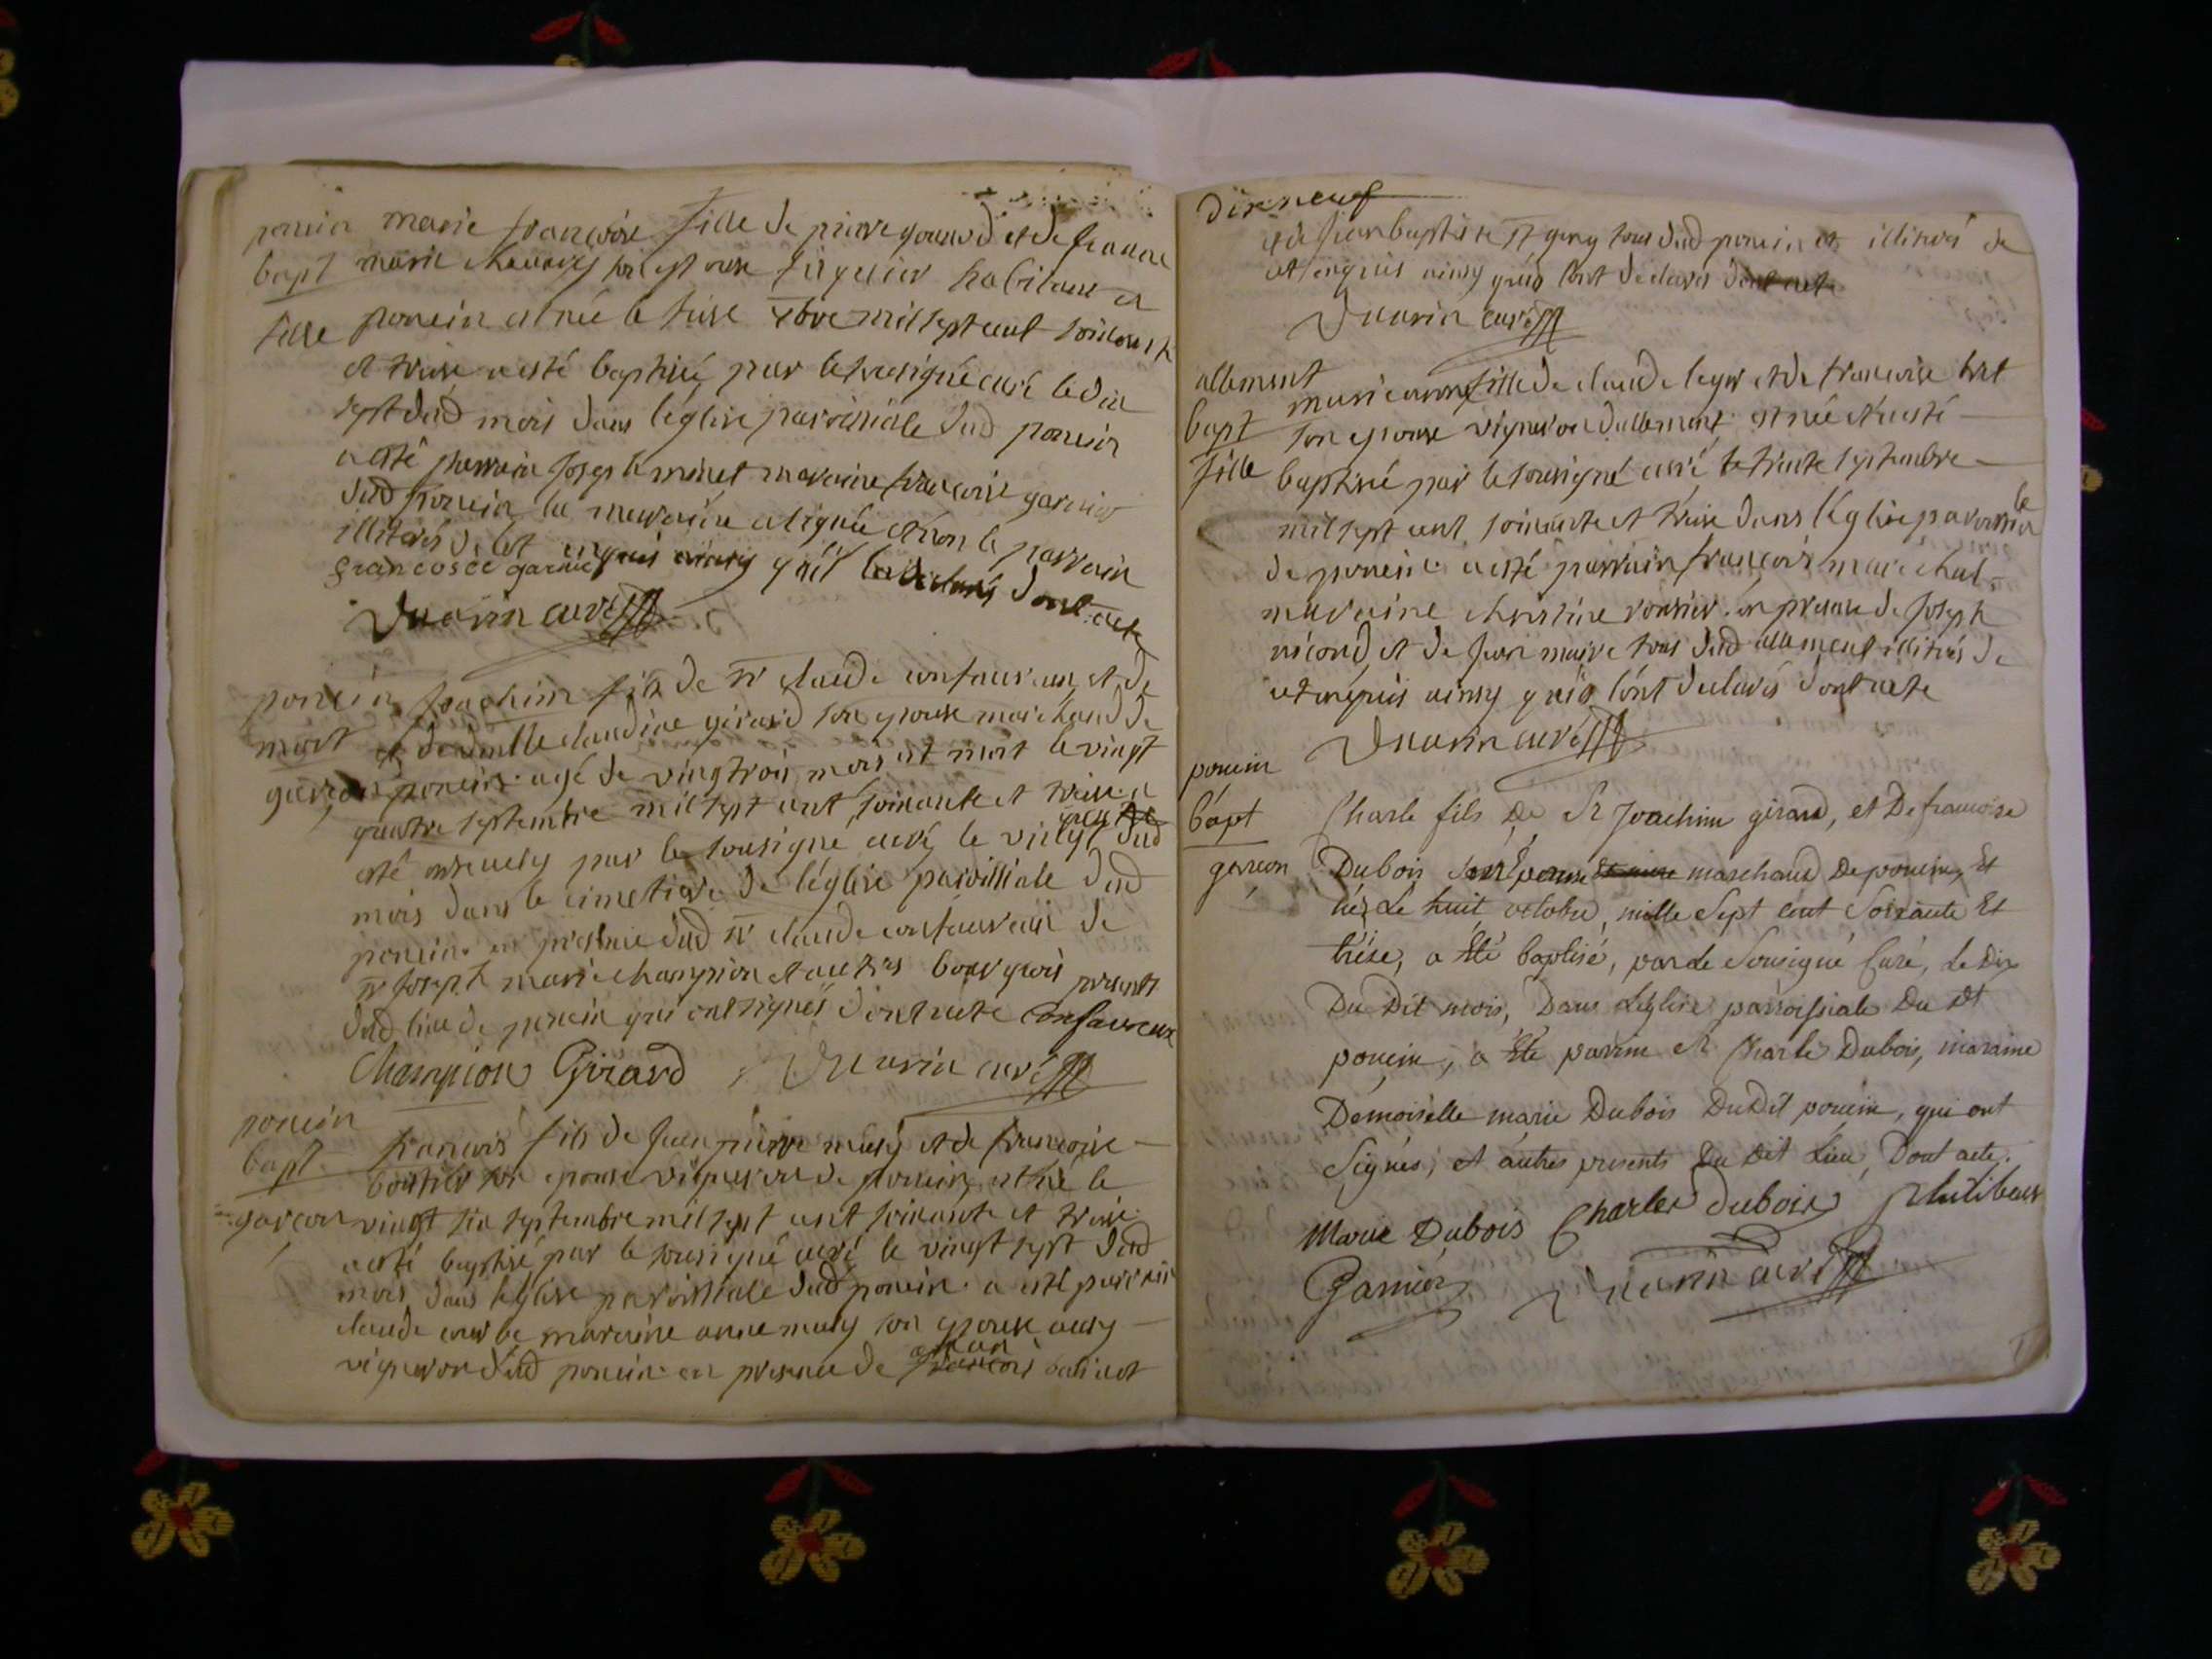 poncin marie françoise fille de pierre gourd et de jeanne
bapt marie son epouse habitans a
fille poncin est née le seise 7bre mil sept cent soixante
et treise a esté baptisée par le sousigné curé le dix
sept dud mois dans leglise paroissiale dud poncin
a esté parrain joseph minet maraine françoise garnier
dud poncin la maraine a signée et non le parrain
illiteré de ce enquis ainsy qu'il la declaré dont acte
francoise garnier
Duarin curé
poncin joachim fils de sr claude confavreux et de
mort et demlle claudine girard son epouse marchand de
garcon poncin agé de vingtrois mois est mort le vingt
quatre septembre mil sept cent soixante et treise a
quatre
esté ensevely par le sousigné curé le vingt dud
mois dans le cimetiere de léglise paroissiale dud
poncin en presence dud sr claude confavreux de
sr joseph marie champion et autres bourgeois presents
dud lieu de poncin qui ont signés dont acte Confavreux
Champion Girard Duarin curé
poncin
bapt francois fils de jean pierre musy et de francoise
bottier son epouse vigneron de poncin est né le
garcon vingt six septembre mil sept cent soixante et treise
a esté baptisé par le sousigné curé le vingt sept dud
mois dans leglise paroissiale dud poncin a esté parrain
claude courbe maraine anne musy son epouse aussy
vigneron dud poncin en presence de francois
Dix neuf
et de jean baptiste tous dud poncin et illiterés de
ce enquis ainsy qu'ils lont declarés dont acte
Duarin curé
allement
marie anne fille de claude leger et de francoise
bapt son epouse vigneron dallement est née et a esté
fille baptisé par le sousigné curé le trente septembre
mil sept cent soixante et treise dans léglise paroissiale
de poncin a esté parrain françois marechal
maraine christine rousset en presence de joseph
nicoud et de jean maire tous dud allement illiterés de
ce enquis ainsy qu'ils lont declarés dont acte
Duarin curé
poncin
bapt Charle fils De Sr Joachim girard, et De francoise
garcon Dubois Son Epouse marchand De poncin, Et
né, Le huit octobre, mille Sept cent Soixante Et
tréise, a Eté baptisé, par Le Sousigné Curé, Le Dix
Du Dit mois, Dans L'église parroissiale Du Dt
poncin, a Eté parrin Sr Charle Dubois, maraine
Démoiselle marie Dubois Du Dit poncin, qui ont
Signés, et autres presents Du Dit Lieu, Dont acte.
Marie Dubois Charles Dubois Philibeur
Garnier Duarin curé